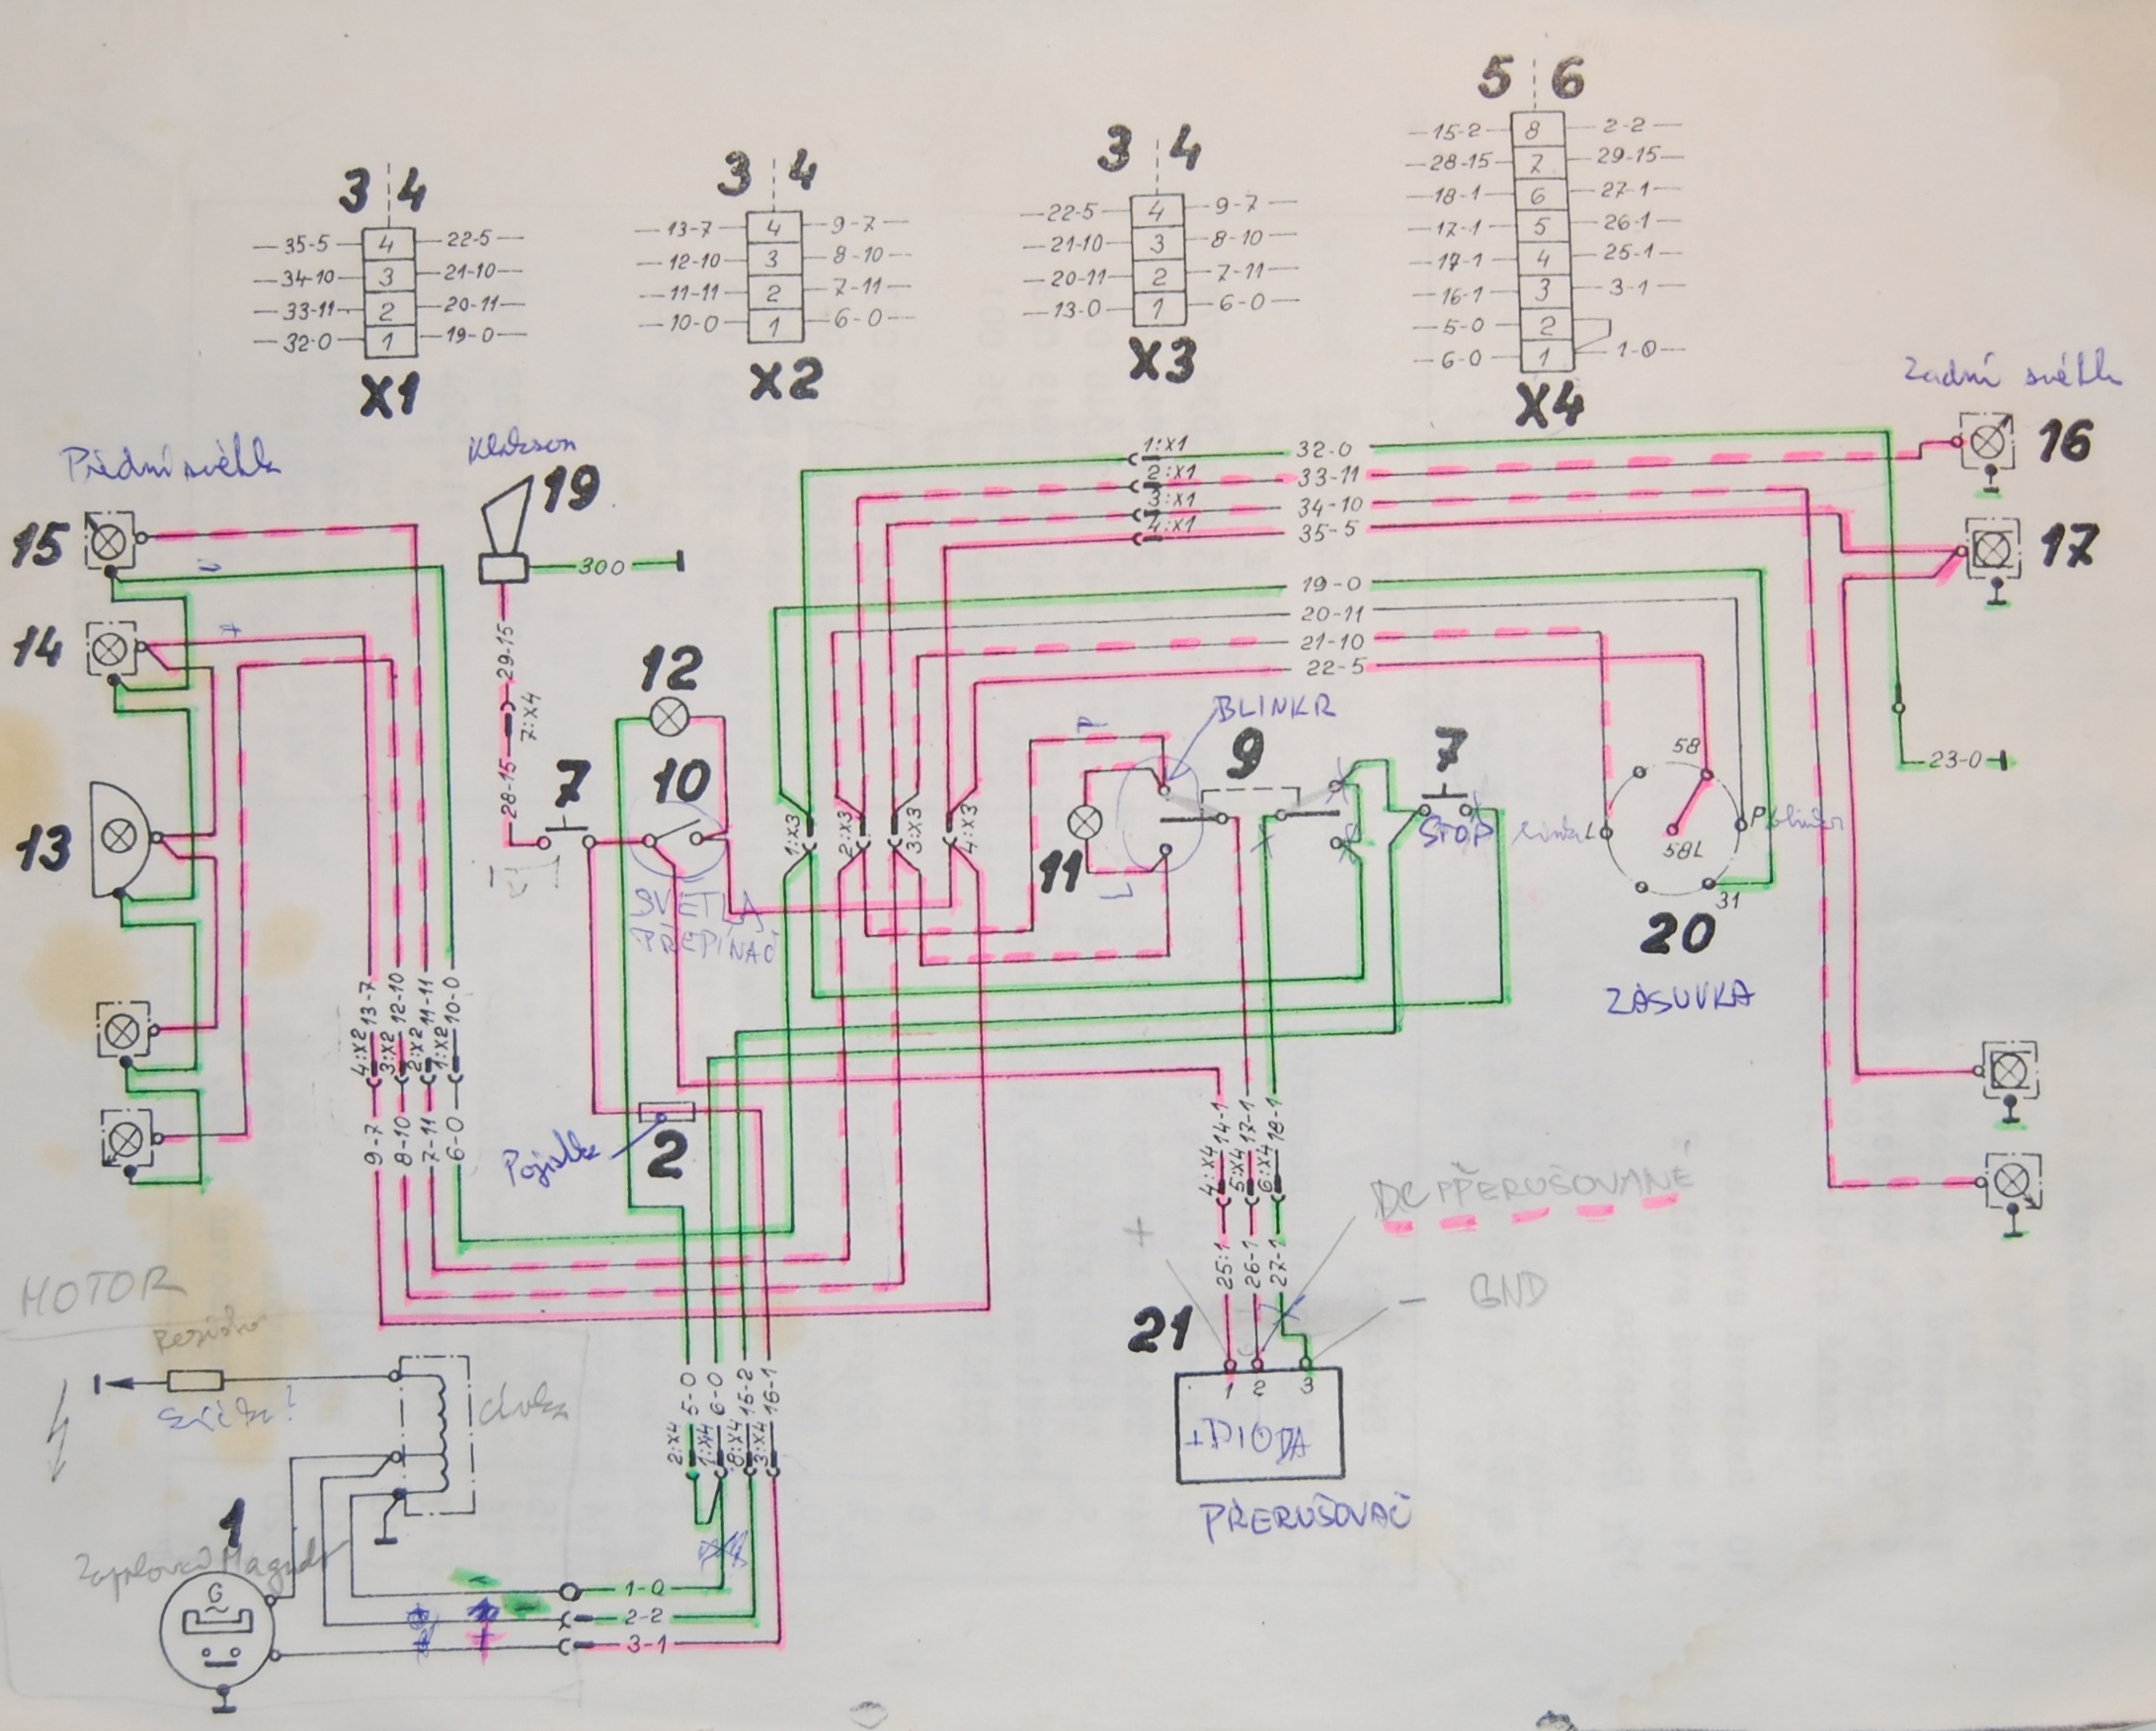 5 6
3 4
3 4
3 4
—15-2— 8 —2-2—
—28-15— 7 —29-15—
—18-1— 6 —27-1—
—17-1— 5 —26-1—
—17-1— 4 —25-1—
—16-1— 3 —3-1—
—5-0— 2
—6-0— 1 —1-0—
X4
—35-5— 4 —22-5—
—34-10— 3 —21-10—
—33-11— 2 —20-11—
—32-0— 1 —19-0—
X1
—13-7— 4 —9-7—
—12-10— 3 —8-10—
—11-11— 2 —7-11—
—10-0— 1 —6-0—
X2
—22-5— 4 —9-7—
—21-10— 3 —8-10—
—20-11— 2 —7-11—
—13-0— 1 —6-0—
X3
Zadní světla
Přední světla
Klakson
19
300
29-15
7:X4
28-15
15
14
13
16
17
1:X1 32-0
2:X1 33-11
3:X1 34-10
4:X1 35-5
19-0
20-11
21-10
22-5
12
7
10
SVĚTLA
PŘEPÍNAČ
1:X3
2:X3
3:X3
4:X3
BLINKR
P
11
L
9
7
STOP
58
58L
L
P blinkr
31
20
ZÁSUVKA
23-0
4:X2 13-7
3:X2 12-10
2:X2 11-11
1:X2 10-0
9-7
8-10
7-11
6-0
Pojistka
2
4:X4 14-1
5:X4 17-1
6:X4 18-1
25:1
26-1
27-1
+
DC PŘERUŠOVANÉ
— GND
21
1 2 3
+DIODA
PŘERUŠOVAČ
MOTOR
cívka
2:X4 5-0
1:X4 6-0
8:X4 15-2
3:X4 16-1
1
G
1-0
2-2
3-1